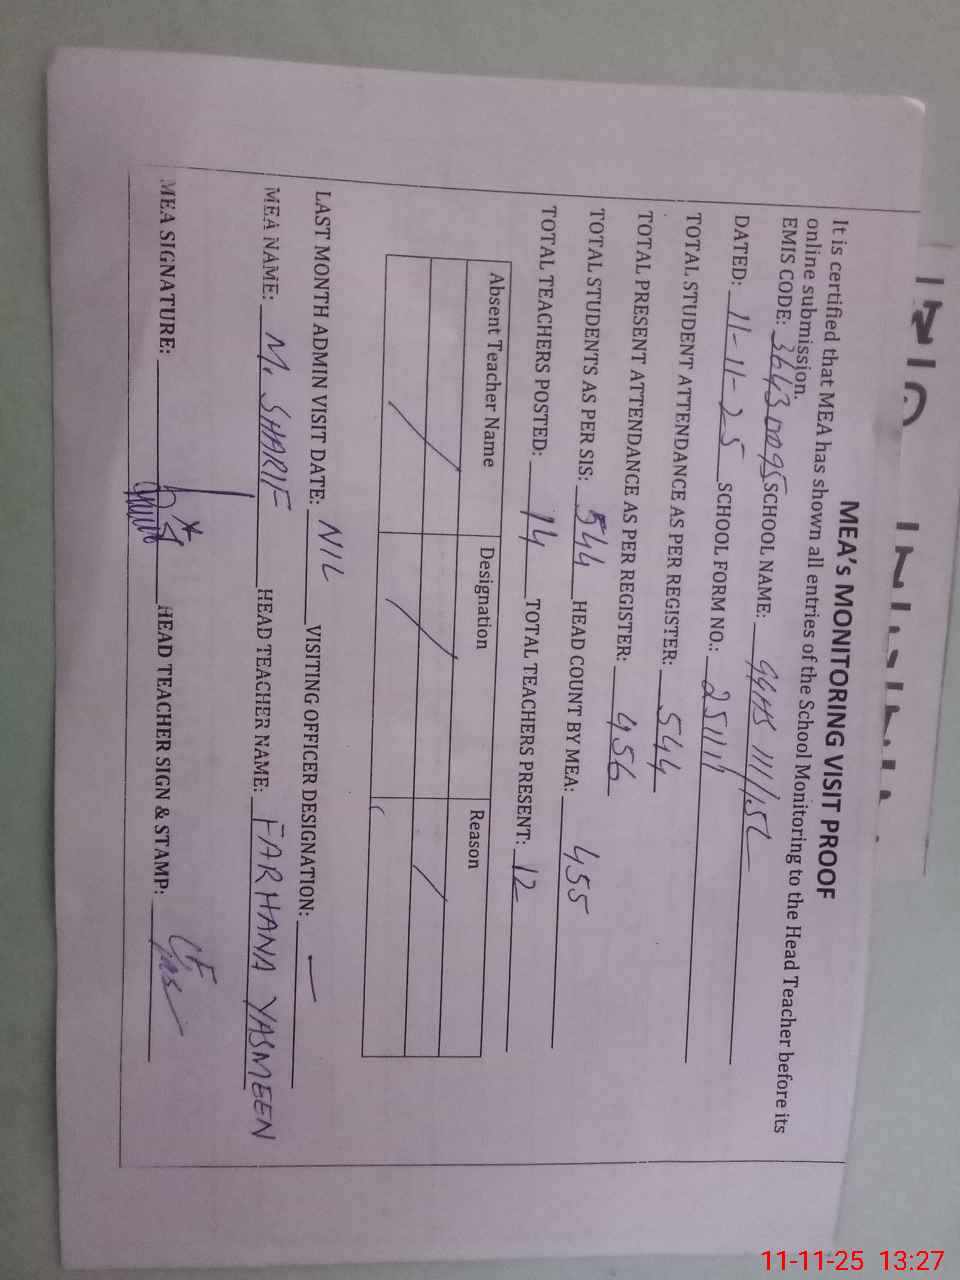 MEA's MONITORING VISIT PROOF
It is certified that MEA has shown all entries of the School Monitoring to the Head Teacher before its
online submission.
EMIS CODE: 36430095 SCHOOL NAME: GGHS 111/15L
DATED: 11-11-25 SCHOOL FORM NO.: 251111
TOTAL STUDENT ATTENDANCE AS PER REGISTER: 544
TOTAL PRESENT ATTENDANCE AS PER REGISTER: 456
TOTAL STUDENTS AS PER SIS: 544 HEAD COUNT BY MEA: 455
TOTAL TEACHERS POSTED: 14 TOTAL TEACHERS PRESENT: 12
Absent Teacher Name Designation Reason
LAST MONTH ADMIN VISIT DATE: NIL VISITING OFFICER DESIGNATION: —
MEA NAME: M. SHARIF HEAD TEACHER NAME: FARHANA YASMEEN
MEA SIGNATURE: HEAD TEACHER SIGN & STAMP:
11-11-25 13:27